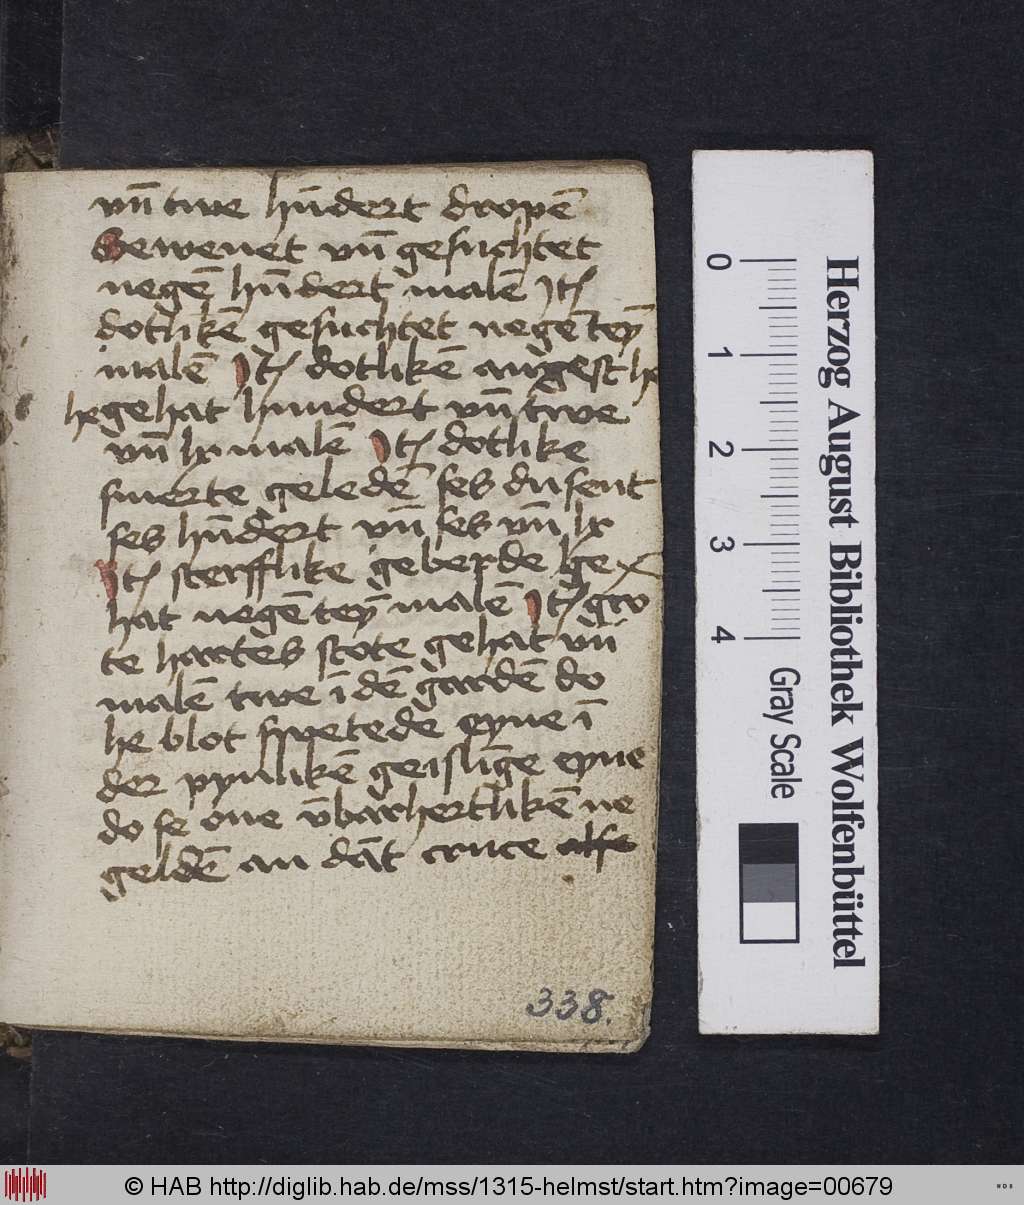 vn̄ twe hūdert dropē
Gewenet vn̄ gesuchtet
negē hūdert malē Jt̄
dotlikē gesuchtet negēteȳ
malē Jt̄ dotlikē angest he
he gehat hundert vn̄ twe
vn̄ lx malē Jt̄ dotlike
smerte geledē ses dusent
ses hūdert vn̄ ses vn̄ lx
Jt̄ sterfflike geberde he
hat negēteȳ malē Jt̄ gro
te hartes stote gehat vn̄
malē twe ī dē gardē do
he blot swetede eyne ī
der pynlikē geislīge eyne
do se one v̄barhertlikē ne
geldē an dāt cruce
338.
0
1
2
3
4
Gray Scale
Herzog August Bibliothek Wolfenbüttel
© HAB http://diglib.hab.de/mss/1315-helmst/start.htm?image=00679